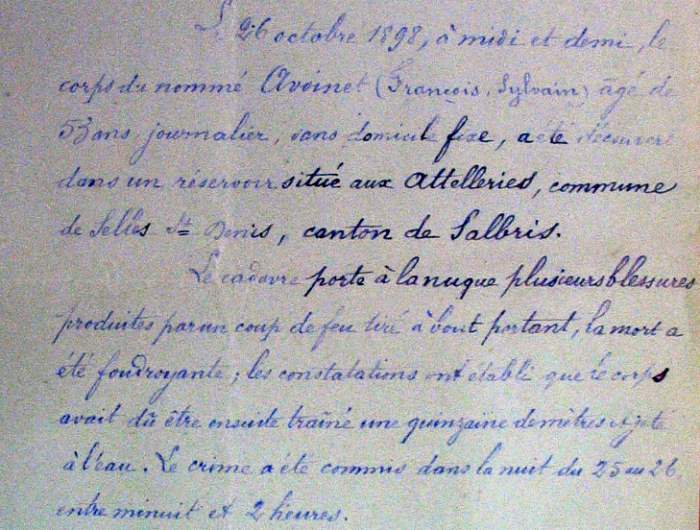 Le 26 octobre 1898, à midi et demi, le
corps du nommé Avoinet (François, Sylvain) âgé de
53 ans journalier, sans domicile fixe, a été découvert
dans un réservoir situé aux Attelleries, commune
de Selles St Denis, canton de Salbris.
Le cadavre porte à la nuque plusieurs blessures
produites par un coup de feu tiré à bout portant, la mort a
été foudroyante ; les constatations ont établi que le corps
avait dû être ensuite traîné une quinzaine de mètres et jeté
à l'eau. Le crime a été commis dans la nuit du 25 au 26
entre minuit et 2 heures.